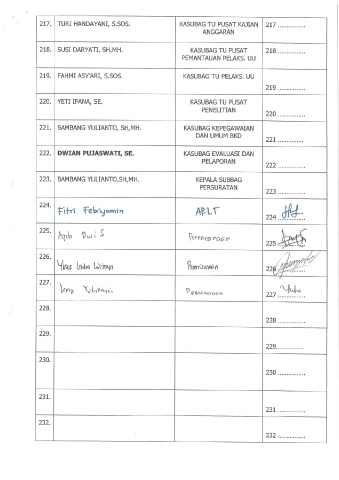 217. TURI HANDAYANI, S.SOS. KASUBAG TU PUSAT KAJIAN ANGGARAN 217 ................
218. SUSI DARYATI, SH,MH. KASUBAG TU PUSAT PEMANTAUAN PELAKS. UU 218 ................
219. FAHMI ASY'ARI, S.SOS. KASUBAG TU PELAKS. UU 219 ................
220. YETI IFANA, SE. KASUBAG TU PUSAT PENELITIAN 220 ................
221. BAMBANG YULIANTO, SH,MH. KASUBAG KEPEGAWAIAN DAN UMUM BKD 221 ................
222. DWIAN PUJASWATI, SE. KASUBAG EVALUASI DAN PELAPORAN 222 ................
223. BAMBANG YULIANTO,SH,MH. KEPALA SUBBAG PERSURATAN 223 ................
224. Fitri Febiyamin 224
225. Dwi S Perencanaan 225
226. 226
227. Perencanaan 227 ................
228. 228 ................
229. 229 ................
230. 230 ................
231. 231 ................
232. 232 ................